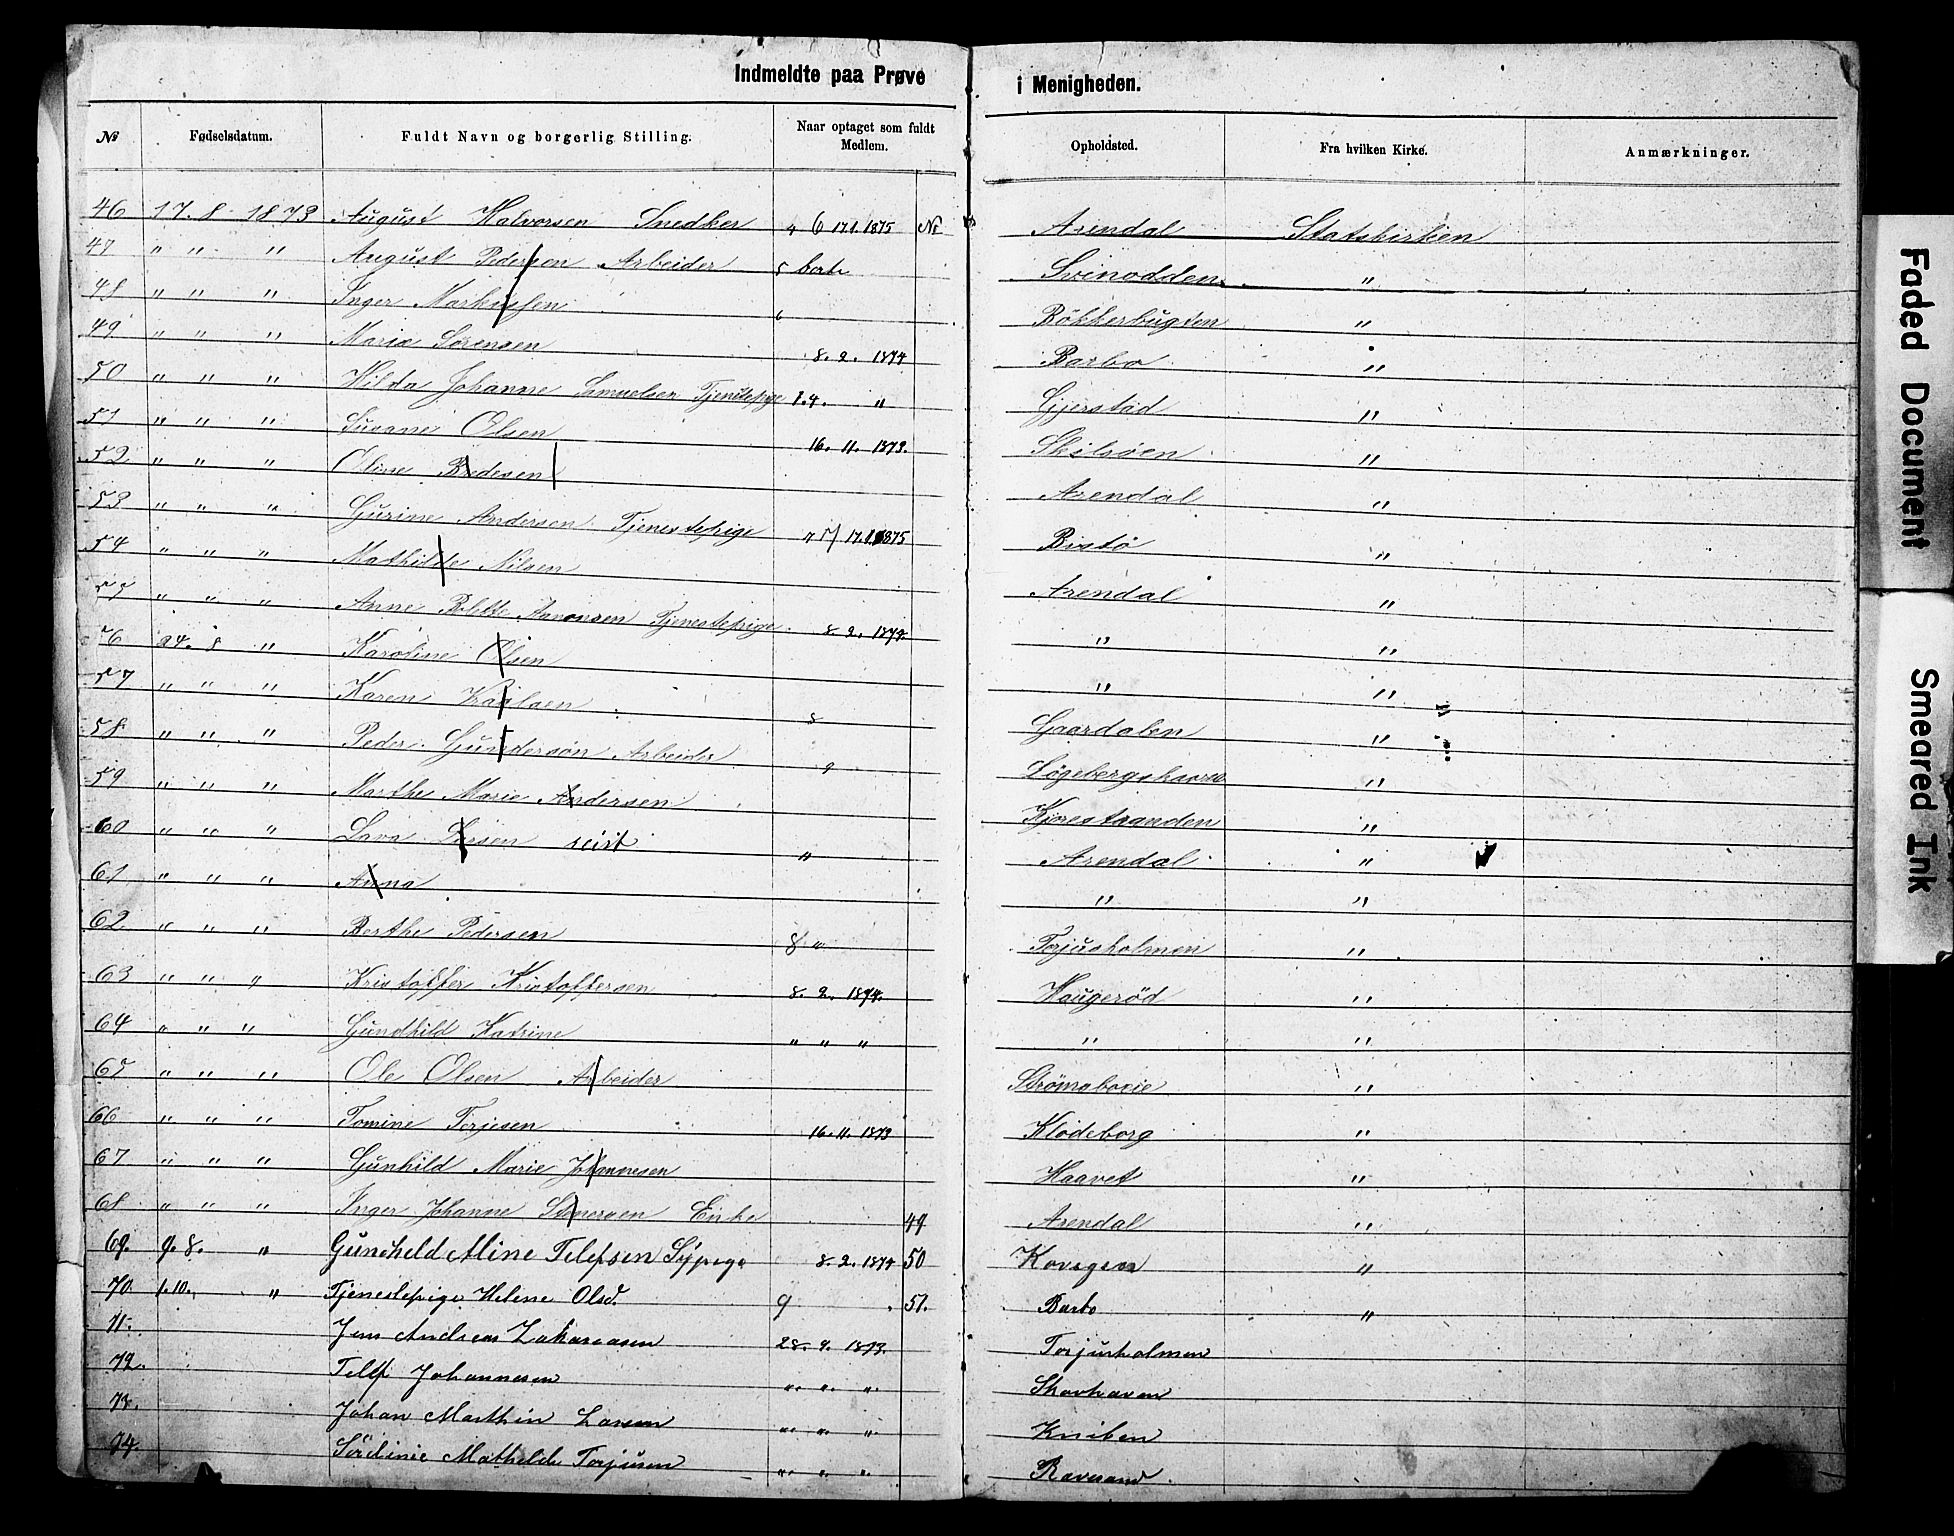 Indmeldte paa Prøve i Menigheden.
№ Fødselsdatum. Fuldt Navn og borgerlig Stilling. Naar optaget som fuldt Medlem. Opholdsted. Fra hvilken Kirke. Anmærkninger.
46 17. 8. 1873 August Halvorsen Snedker 6 17.1.1875 № Arendal Statskirken
47 " " " August Pedersen Arbeider 5 borte Svinodden "
48 " " " Inger Markussen 6 Bökkerbugten "
49 " " " Marie Sørensen 8. 2. 1874 Barbo "
50 " " " Hilda Johanne Samuelsen Tjenstepige 1.4. " Gjerstad "
51 " " " Susane Olsen 16. 11. 1873. Skilsöen "
52 " " " Oline Pedersen Arendal "
53 " " " Gurine Andersen Tjenestepige 17.1.1875 Bistö "
54 " " " Mathilde Nilsen Arendal "
55 " " " Anne Bolette Aanonsen Tjenestepige 8. 2. 1874. " "
56 24. 8 " Karoline Olsen " "
57 " " " Karen Karlsen 8 Gaardalen "
58 " " " Peder Gundersön Arbeider 9 Løgebergskaaren "
59 " " " Marthe Marie Andersen Kjørestranden "
60 " " " Lava reist " Arendal "
61 " " " Anna " "
62 " " " Berthe Pedersen 8 " Torjusholmen "
63 " " " Kristoffer Kristoffersen 8. 2. 1874. Haugeröd "
64 " " " Gundhild Katrine " " " " "
65 " " " Ole Olsen Arbeider Strömsboeie "
66 " " " Tomine Terjesen 16. 11. 1873 Klodeborg "
67 " " " Gunhild Marie Johannesen Haavet "
68 " " " Inger Johanne Enke 49 Arendal "
69. 9. 8. " Gundheld Aline Telefsen Sÿpige 8. 2. 1874 50 "
70 1.10. " Tjenestepige Helene Olsd. 9 51. Barbo "
71. Jens Andreas Zakariasen 28. 9. 1873. Torjusholmen
72. Telef Johannesen " " " Skovhaven
73. Johan Marthin Larsen " " " Kniben
74. Sördinie Mathilde Torjusen " " " Ravesand
Faded Document
Smeared Ink